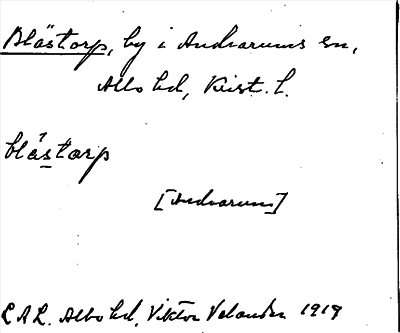 Blästorp, by i Andrarums sn,
Albo hd, Krist. l.
blástarp
[Andrarum]
L.A.L. Albo hd, Viktor Velander 1919